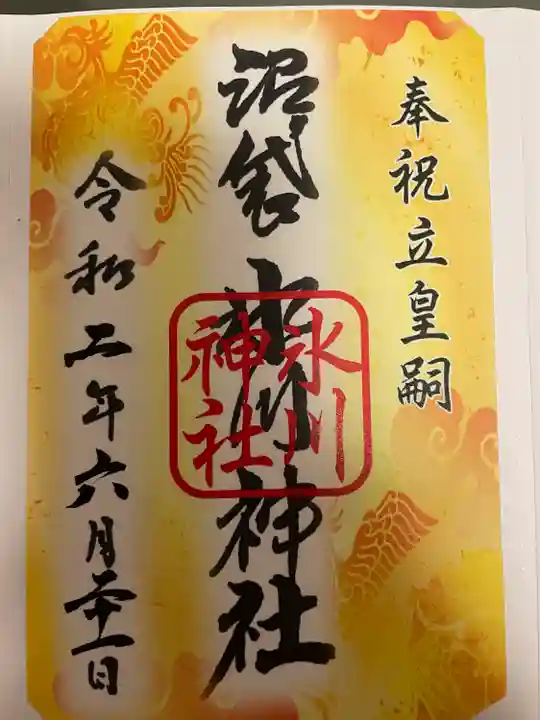 奉祝立皇嗣
沼袋氷川神社
氷川
神社
令和二年六月二十一日